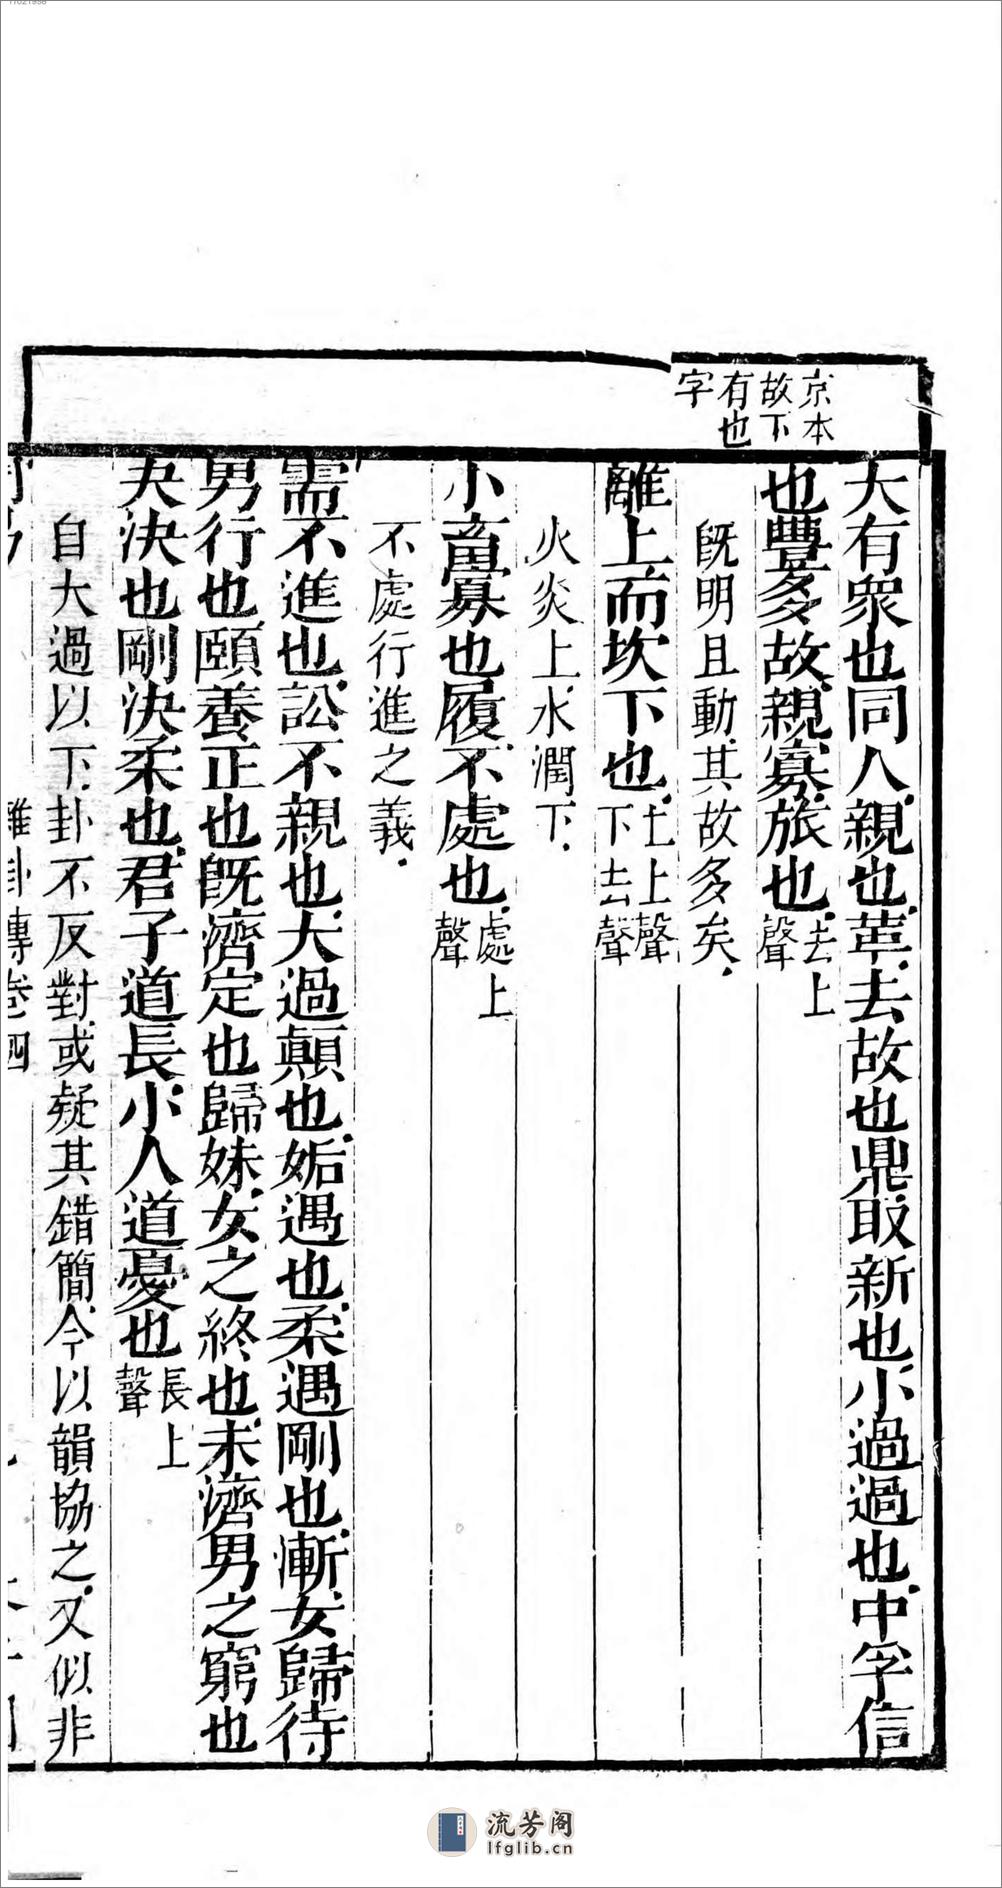 京本
故下
有也
字
大有眾也同人親也革去故也鼎取新也小過過也中孚信
也豐多故親寡旅也去上聲
既明且動其故多矣
離上而坎下也上上聲下去聲
火炎上水潤下
小畜寡也履不處也處上聲
不處行進之義
需不進也訟不親也大過顚也姤遇也柔遇剛也漸女歸待
男行也頤養正也既濟定也歸妹女之終也未濟男之窮也
夬決也剛決柔也君子道長小人道憂也長上聲
自大過以下卦不反對或疑其錯簡今以韻協之又似非
雜卦傳卷四
流芳阁
lfglib.cn